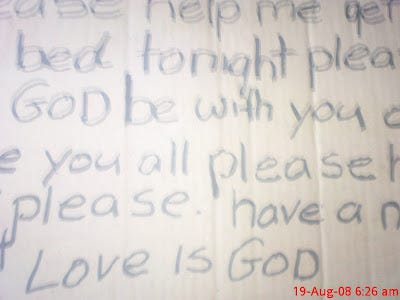 help me get
bed tonight plea
GOD be with you
you all please
please. have a
LOVE IS GOD
19-Aug-08 6:26 am